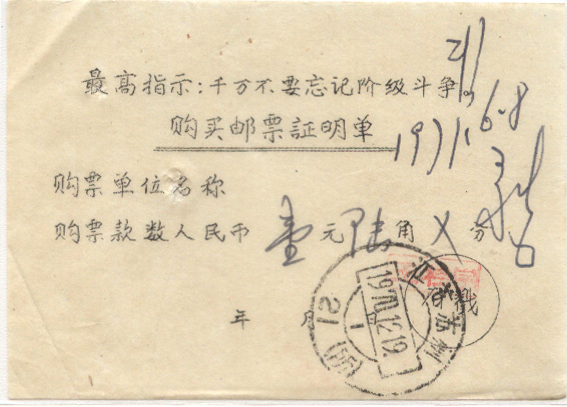 最高指示：千万不要忘记阶级斗争。
购买邮票証明单
1971.6.8
购票单位名称
购票款数人民币 壹 元 陆 角 乂 分
年 月 日
戳
江苏苏州
1970.12.19
21